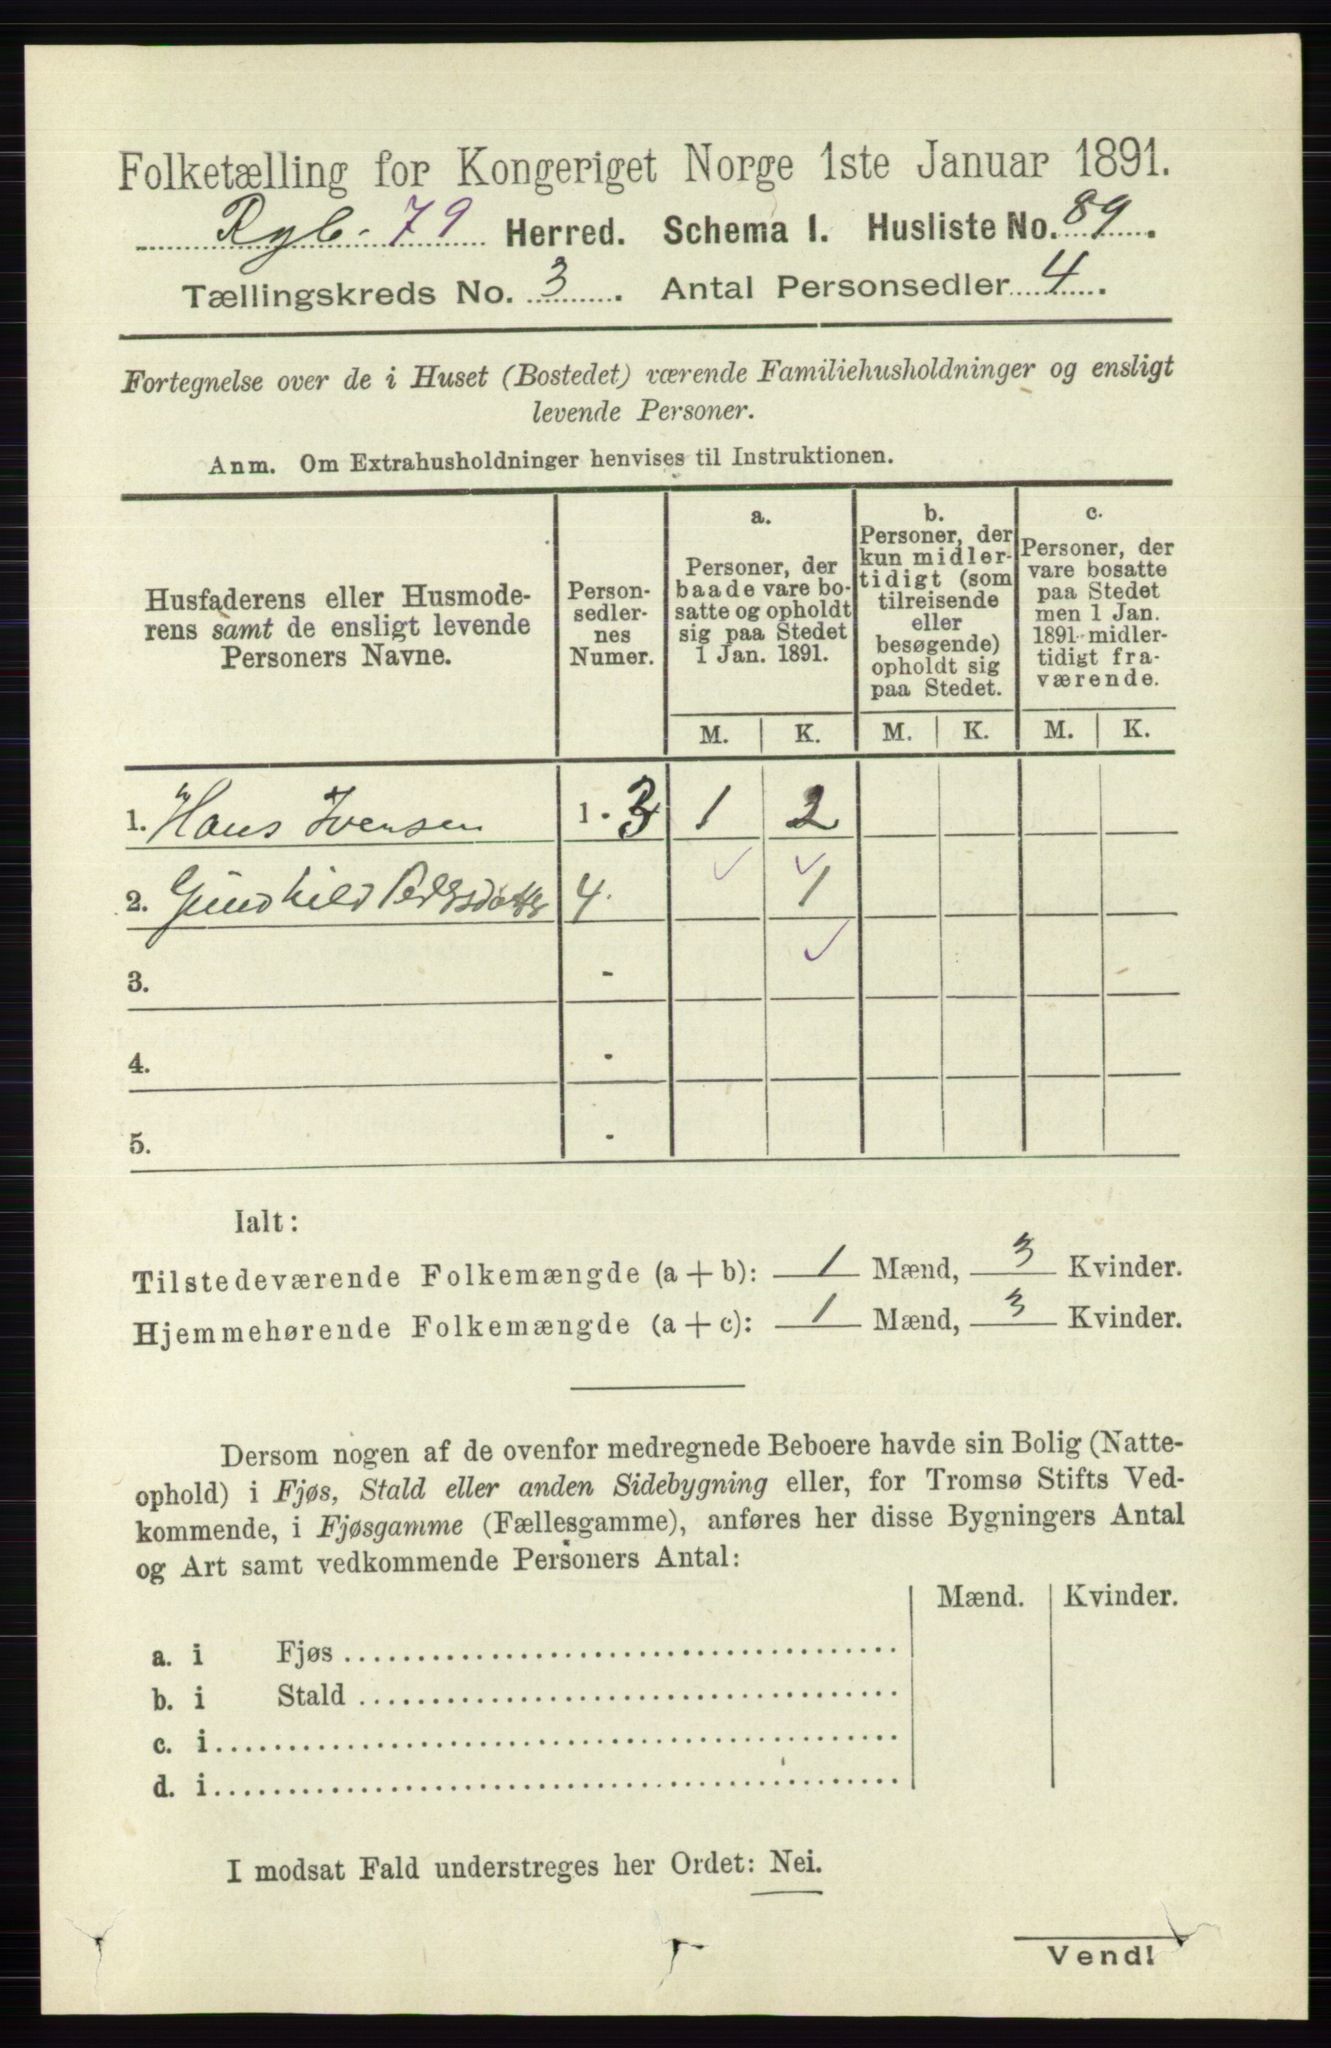 Folketælling for Kongeriget Norge 1ste Januar 1891.
Ryb. 79 Herred. Schema I. Husliste No. 89.
Tællingskreds No. 3. Antal Personsedler 4.
Fortegnelse over de i Huset (Bostedet) værende Familiehusholdninger og ensligt
levende Personer.
Anm. Om Extrahusholdninger henvises til Instruktionen.
Husfaderens eller Husmode-
rens samt de ensligt levende
Personers Navne.
Person-
sedler-
nes
Numer.
a.
Personer, der
baade vare bo-
satte og opholdt
sig paa Stedet
1 Jan. 1891.
b.
Personer, der
kun midler-
tidigt (som
tilreisende
eller
besøgende)
opholdt sig
paa Stedet.
c.
Personer, der
vare bosatte
paa Stedet
men 1 Jan.
1891 midler-
tidigt fra-
værende.
M. K. M. K. M. K.
1. Hans Iversen 1 - 3 1 2
2. Gundhild Pedersdatter 4. 1
3. -
4. -
5. -
Ialt:
Tilstedeværende Folkemængde (a + b): 1 Mænd, 3 Kvinder.
Hjemmehørende Folkemængde (a + c): 1 Mænd, 3 Kvinder.
Dersom nogen af de ovenfor medregnede Beboere havde sin Bolig (Natte-
ophold) i Fjøs, Stald eller anden Sidebygning eller, for Tromsø Stifts Ved-
kommende, i Fjøsgamme (Fællesgamme), anføres her disse Bygningers Antal
og Art samt vedkommende Personers Antal:
Mænd. Kvinder.
a. i Fjøs
b. i Stald
c. i
d. i
I modsat Fald understreges her Ordet: Nei.
Vend!